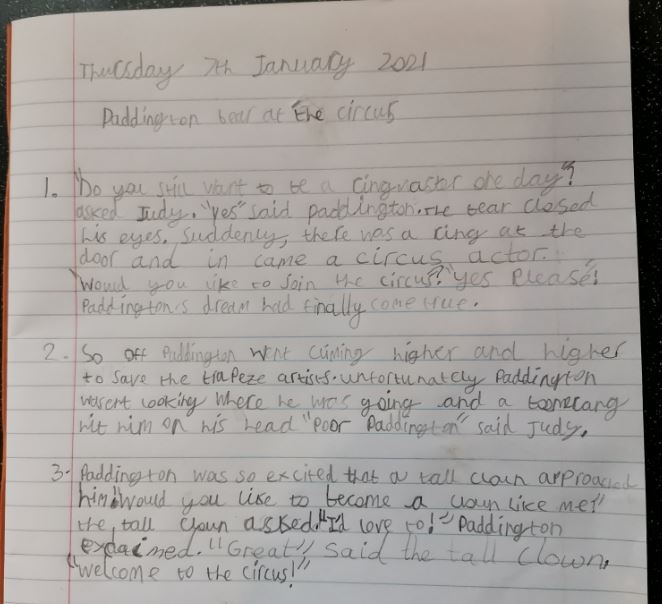 Thursday 7th January 2021
Paddington bear at the circus
1. "Do you still want to be a ringmaster one day"?
asked Judy. "yes" said paddington. The bear closed
his eyes. Suddenly, there was a ring at the
door and in came a circus actor.
"Would you like to join the circus?" "yes Please!
Paddington's dream had finally come true.
2. So off Paddington went climing higher and higher
to save the trapeze artists. unfortunately Paddington
wasent looking where he was going and a boomerang
hit him on his head "Poor Paddington" said Judy.
3. Paddington was so excited that a tall cloun approached
him. "Would you like to become a cloun like me?"
the tall cloun asked. "I'd love to!" Paddington
exclaimed. "Great", said the tall clown.
"welcome to the circus!"